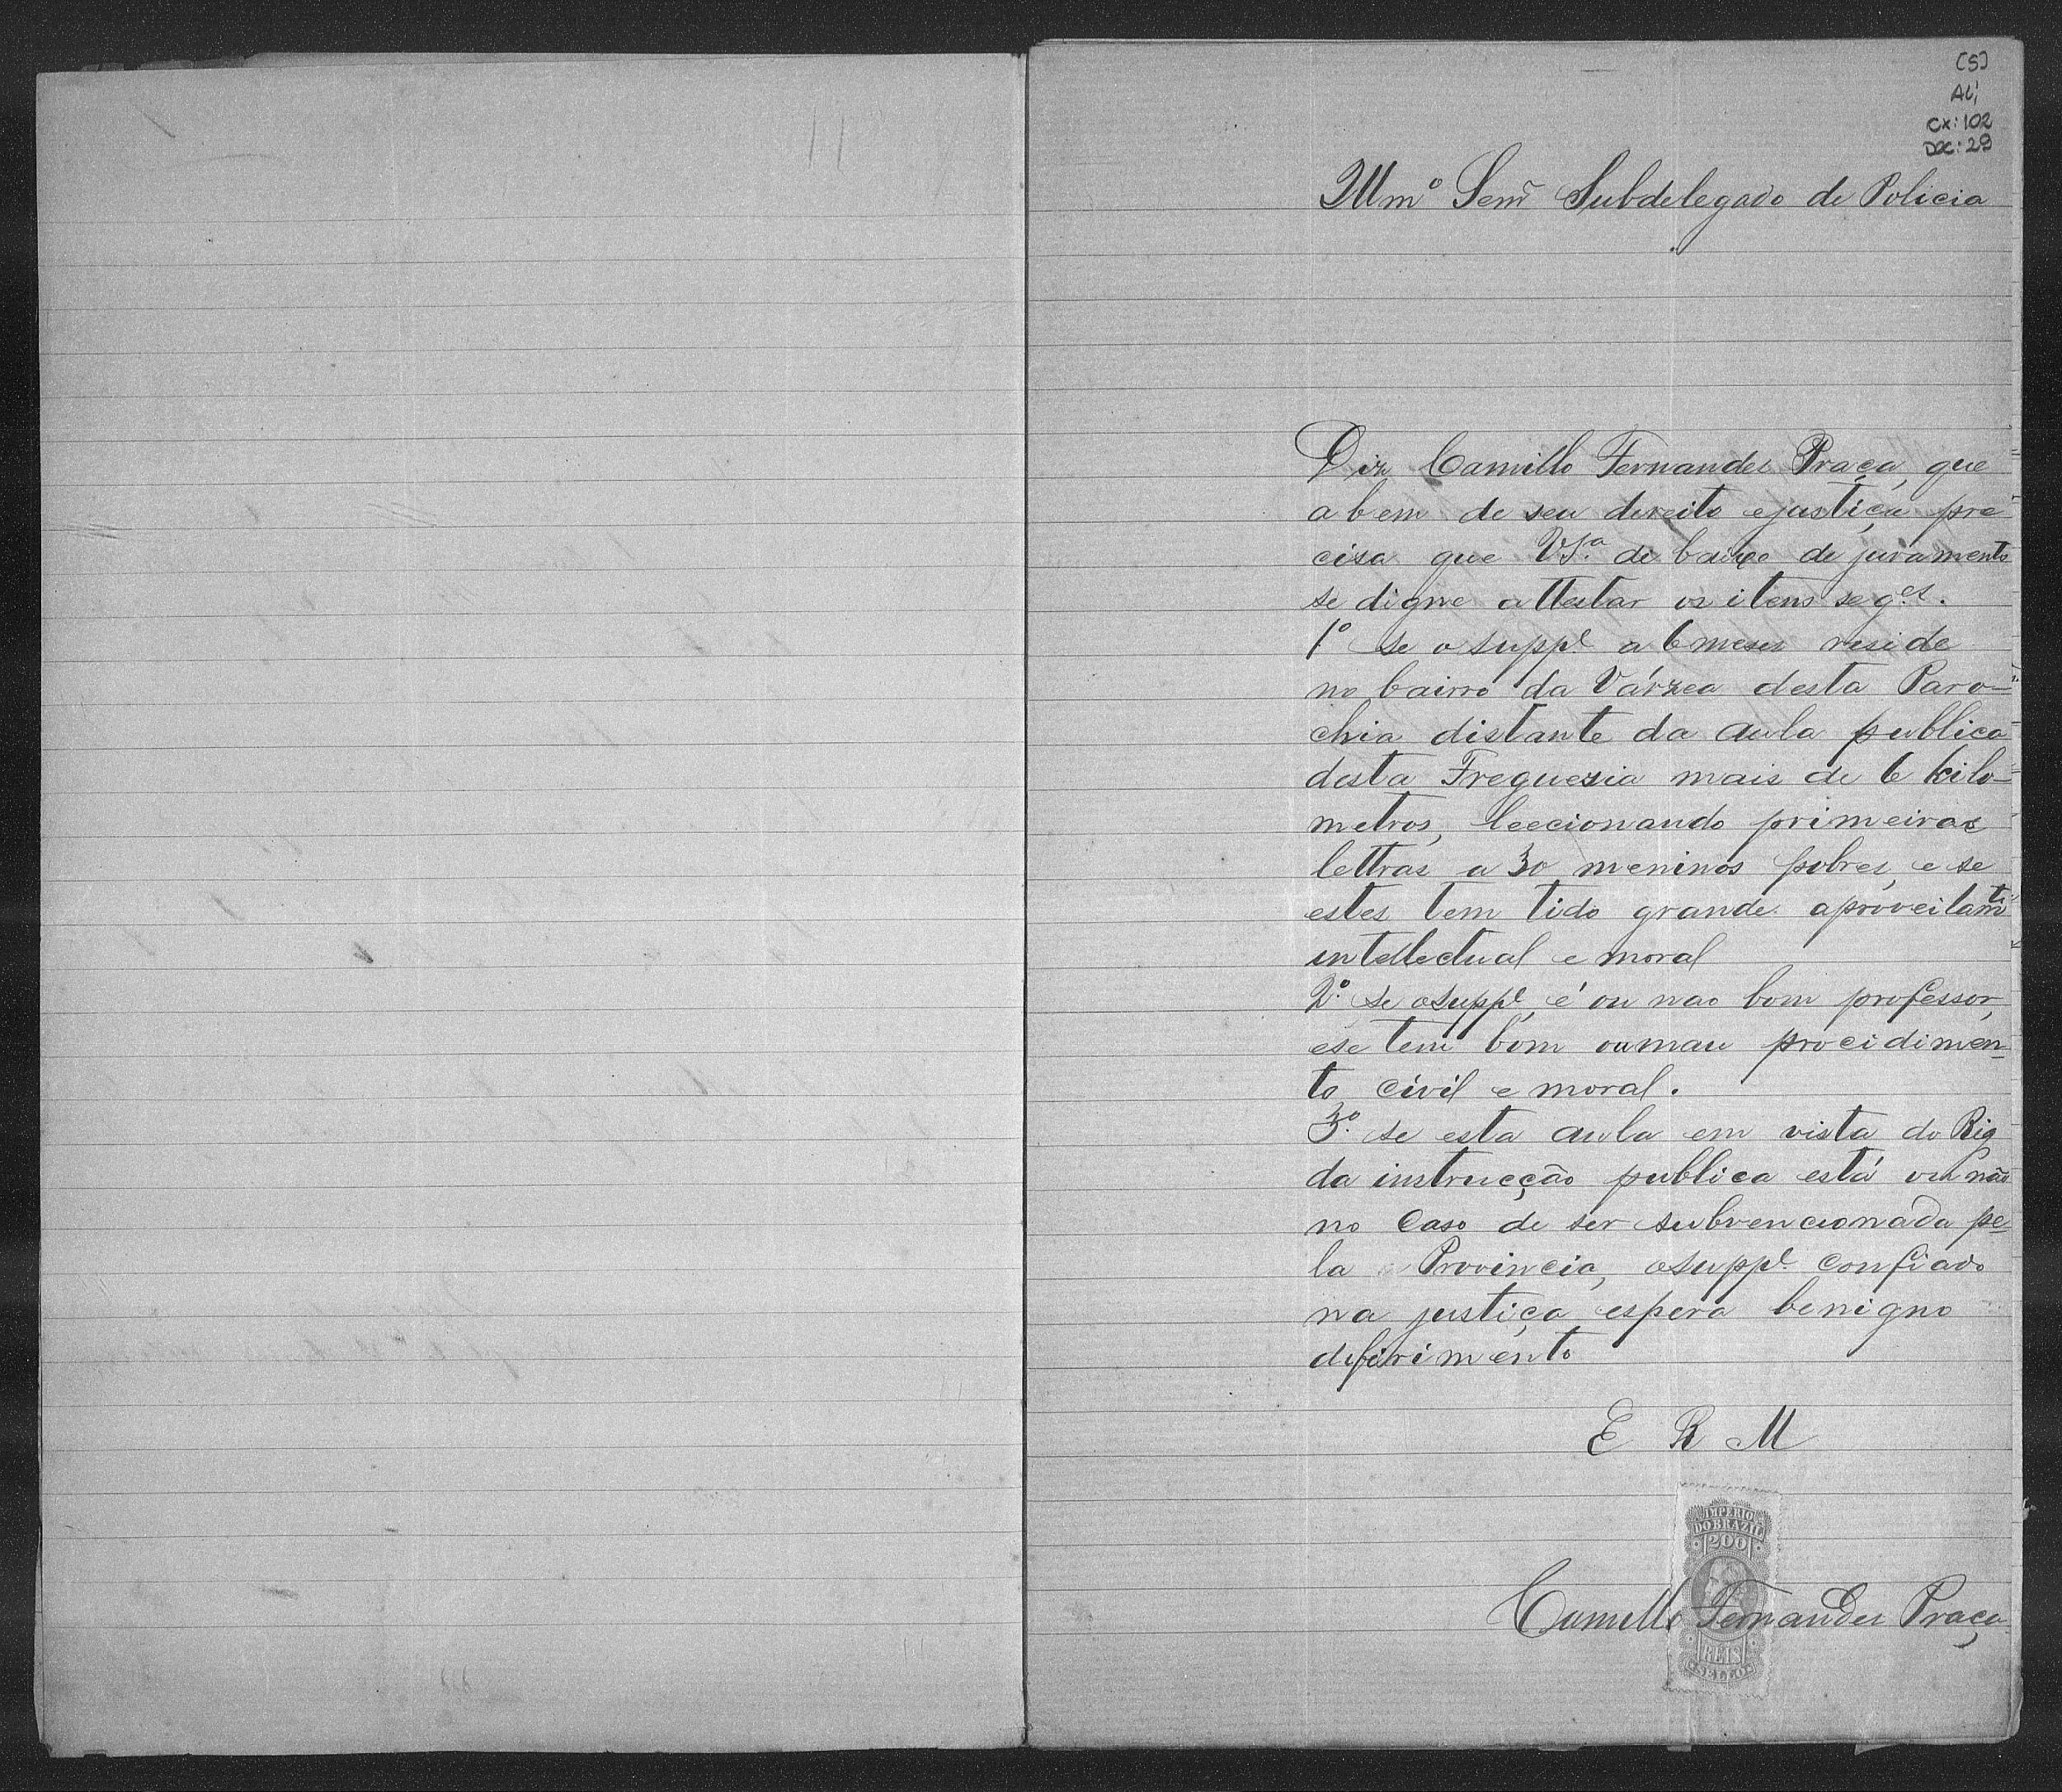 (5)
Al;
cx: 102
Doc: 29
Illmº Senr Subdelegado de Policia
Diz Camillo Fernandes Praça, que
a bem de seu direito e justiça pre
cisa que VSª de baixo de juramento
se digne attestar os itens seges.
1º se o suppe a 6 meses reside
no bairro da Várzea desta Paro-
chia distante da aula publica
desta Freguezia mais de 6 kilo-
metros, leccionando primeiras
lettras a 30 meninos pobres, e se
estes tem tido grande aproveitamto
intellectual e moral
2º. se o suppe é ou nao bom professor,
e se tem bom ou mau procidimen-
to civil e moral.
3º. se esta aula em vista do Reg
da instrucção publica está ou não
no caso de ser subvencionada pe-
la Provincia, o suppe confiado
na justiça espera benigno
difirimento
E R M
IMPERIO
DO BRAZIL
200
Camillo Fernandes Praça
REIS
SELLO